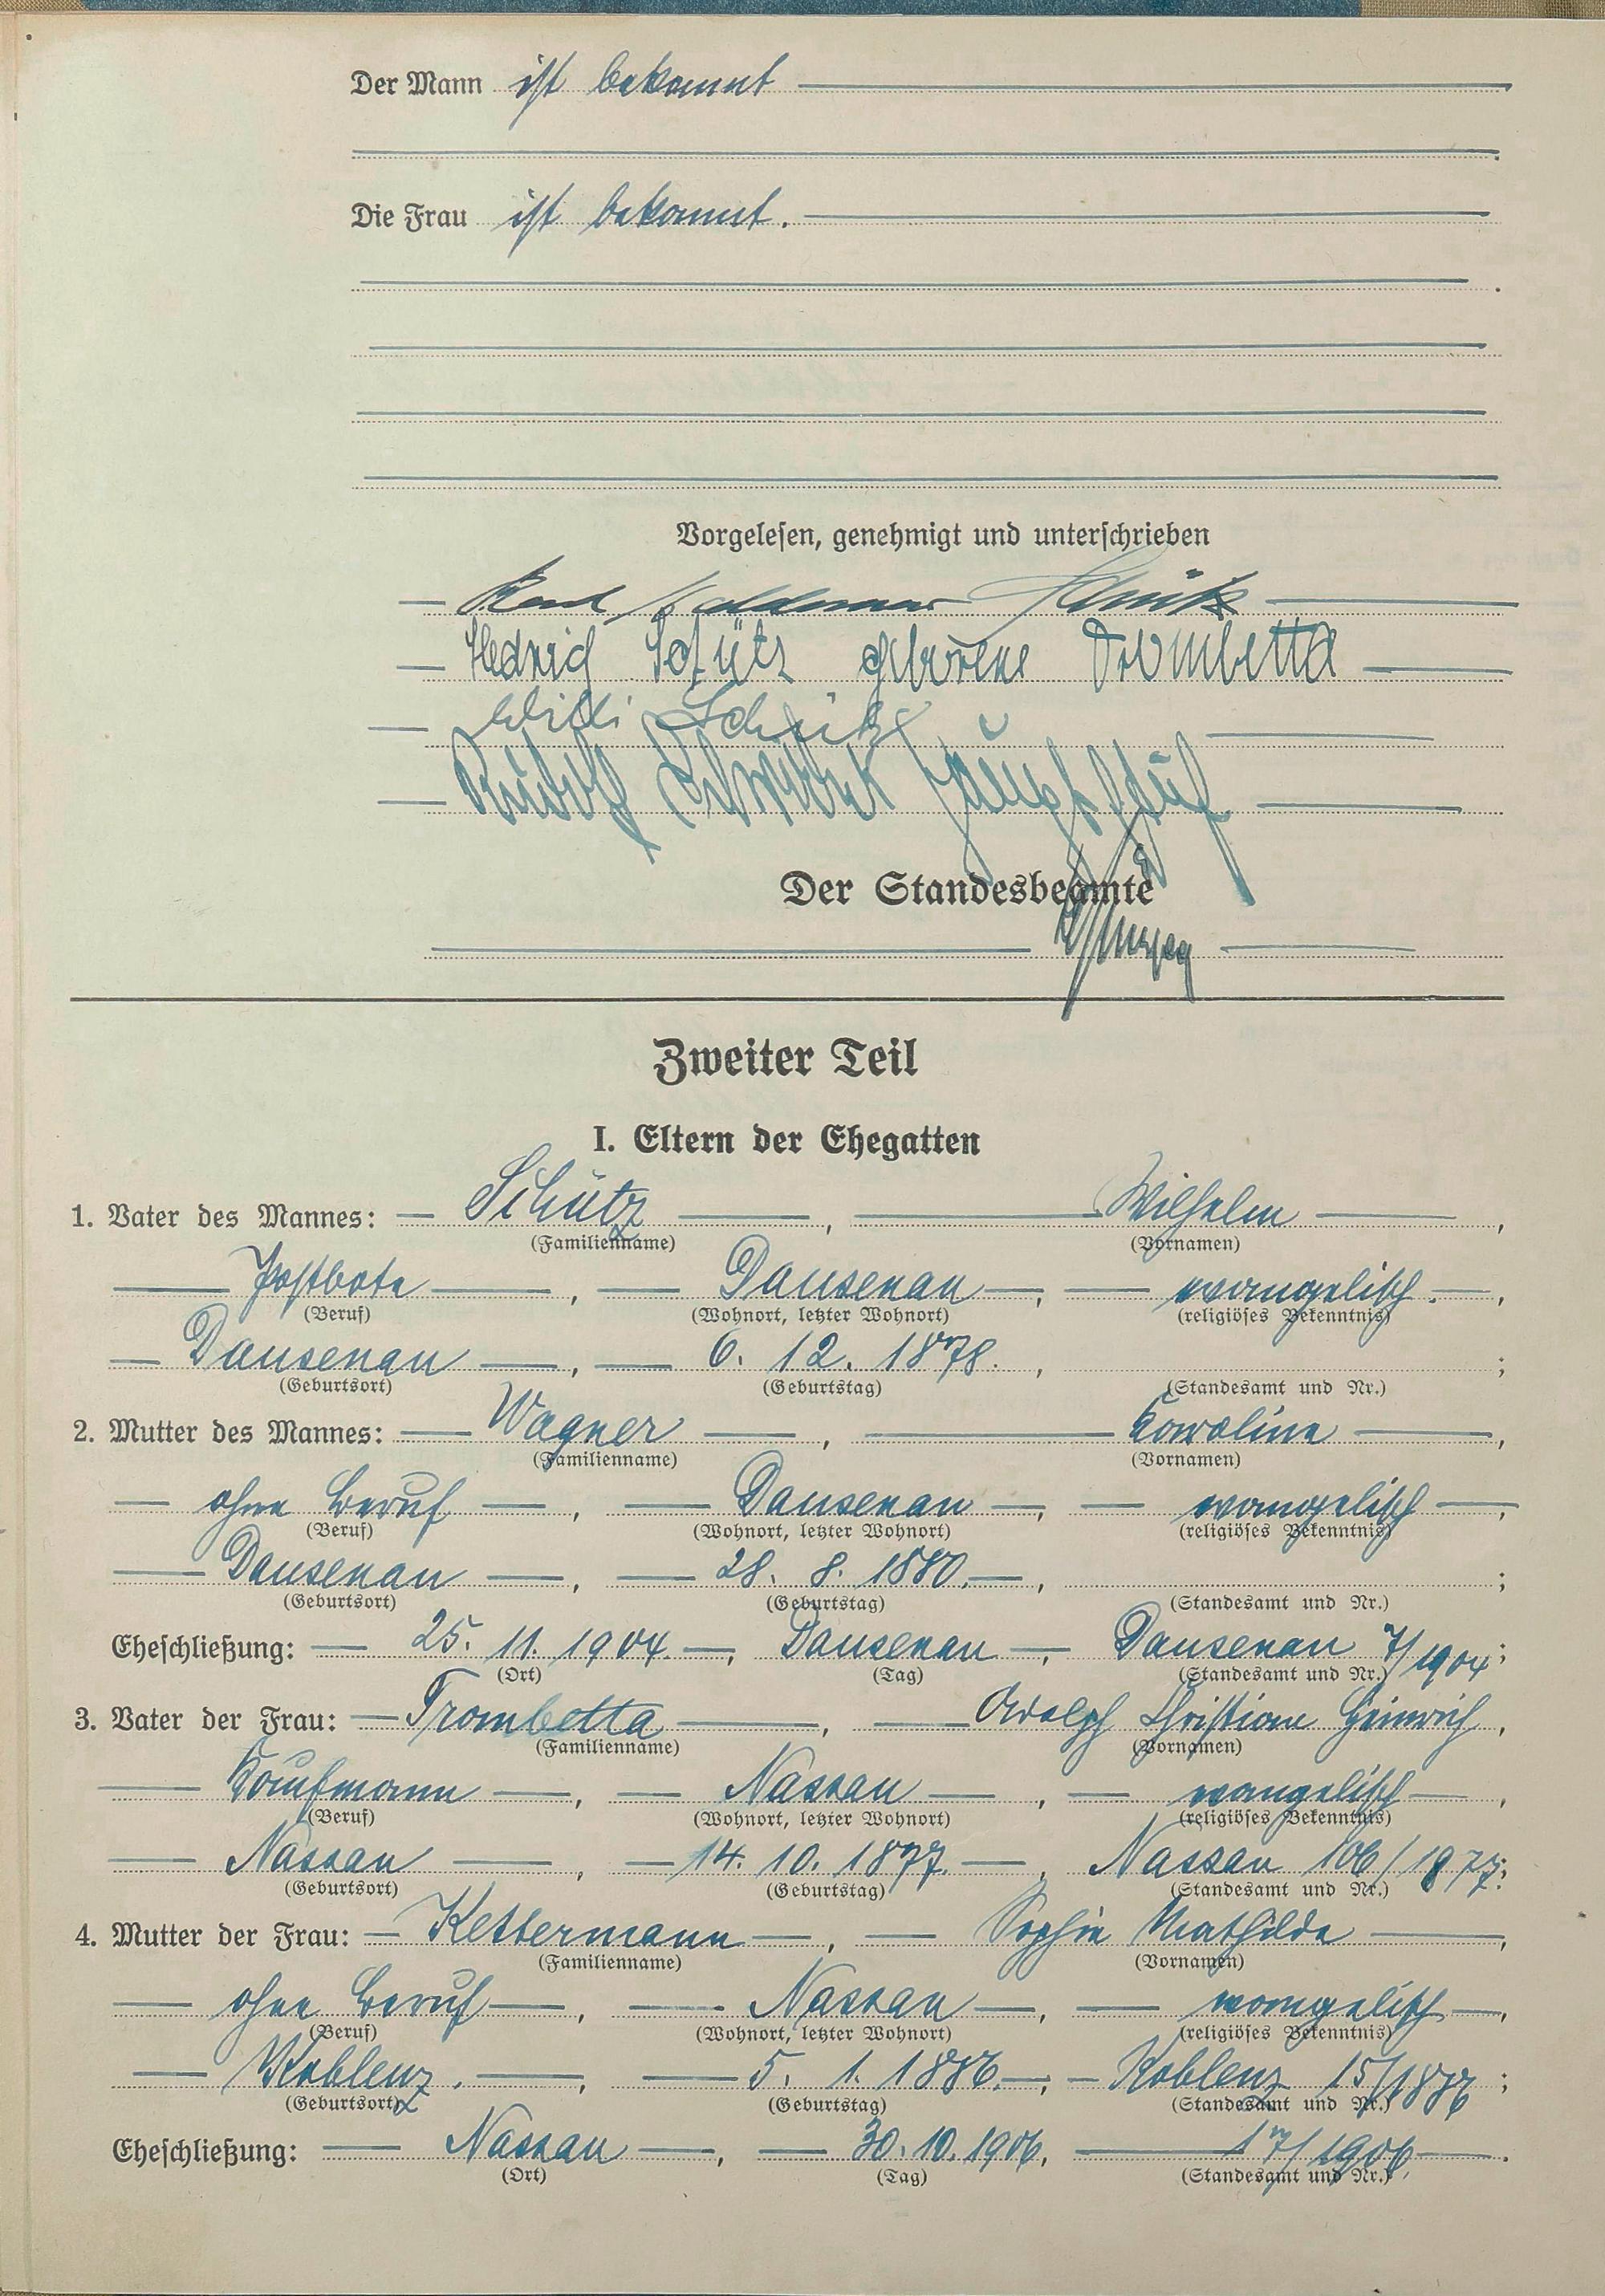 Der Mann ist bekannt
Die Frau ist bekannt.
Vorgelesen, genehmigt und unterschrieben
Karl Waldemar Schütz
Hedwig Schütz geborene Trombetta
Willi Schütz
Rudolf
Der Standesbeamte
Zweiter Teil
I. Eltern der Ehegatten
1. Vater des Mannes: — Schütz —, — Wilhelm —,
(Familienname) (Vornamen)
— Postbote —, — Dausenau —, — evangelisch. —,
(Beruf) (Wohnort, letzter Wohnort) (religiöses Bekenntnis)
— Dausenau —, — 6. 12. 1878. , ;
(Geburtsort) (Geburtstag) (Standesamt und Nr.)
2. Mutter des Mannes: — Wagner —, — Karoline —,
(Familienname) (Vornamen)
— ohne Beruf —, — Dausenau —, — evangelisch —,
(Beruf) (Wohnort, letzter Wohnort) (religiöses Bekenntnis)
— Dausenau —, — 28. 8. 1880. —, ;
(Geburtsort) (Geburtstag) (Standesamt und Nr.)
Eheschließung: — 25. 11. 1904. —, Dausenau —, Dausenau 7/1904;
(Ort) (Tag) (Standesamt und Nr.)
3. Vater der Frau: — Trombetta —, — Adolph Christian Heinrich,
(Familienname) (Vornamen)
— Kaufmann —, — Nassau —, — evangelisch —,
(Beruf) (Wohnort, letzter Wohnort) (religiöses Bekenntnis)
— Nassau —, — 14. 10. 1877. —, Nassau 106/1877;
(Geburtsort) (Geburtstag) (Standesamt und Nr.)
4. Mutter der Frau: — Kettermann —, — Sophie Mathilde —,
(Familienname) (Vornamen)
— ohne Beruf —, — Nassau —, — evangelisch —,
(Beruf) (Wohnort, letzter Wohnort) (religiöses Bekenntnis)
— Koblenz. —, — 5. 1. 1886. —, — Koblenz 15/1886;
(Geburtsort) (Geburtstag) (Standesamt und Nr.)
Eheschließung: — Nassau —, — 30. 10. 1906, — 17/1906 —.
(Ort) (Tag) (Standesamt und Nr.)